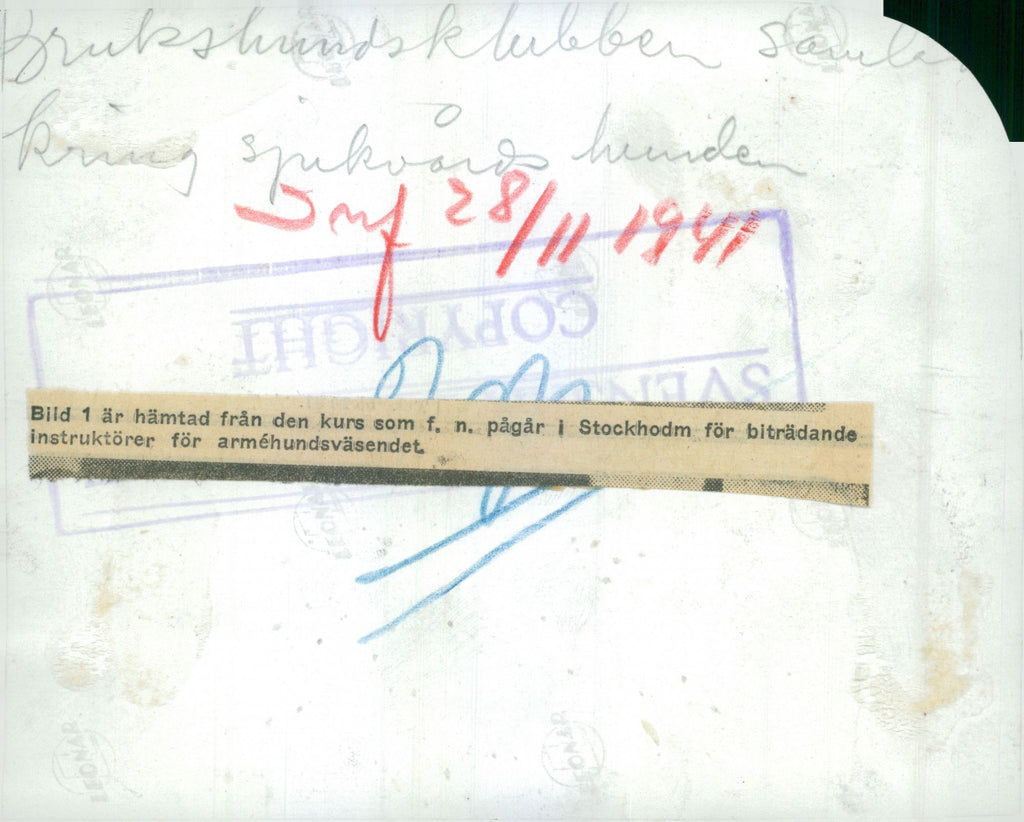 Brukshundsklubben samla
kring sjukvårdshunden
Inf 28/11 1941
COPYRIGHT
SVEN
Bild 1 är hämtad från den kurs som f. n. pågår i Stockhodm för biträdande
instruktörer för arméhundsväsendet.
LEONAR
LEONAR
LEONAR
LEONAR